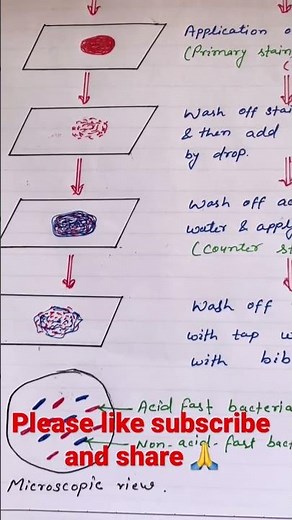 Application o
(Primary stain
(
Wash off stai
& then add
by drop.
Wash off ac
water & apply
(Counter s
Wash off
with tap w
with bib
Acid fast bacteria
Please like subscribe
Non-acid-fast bac
and share 🙏
Microscopic view.